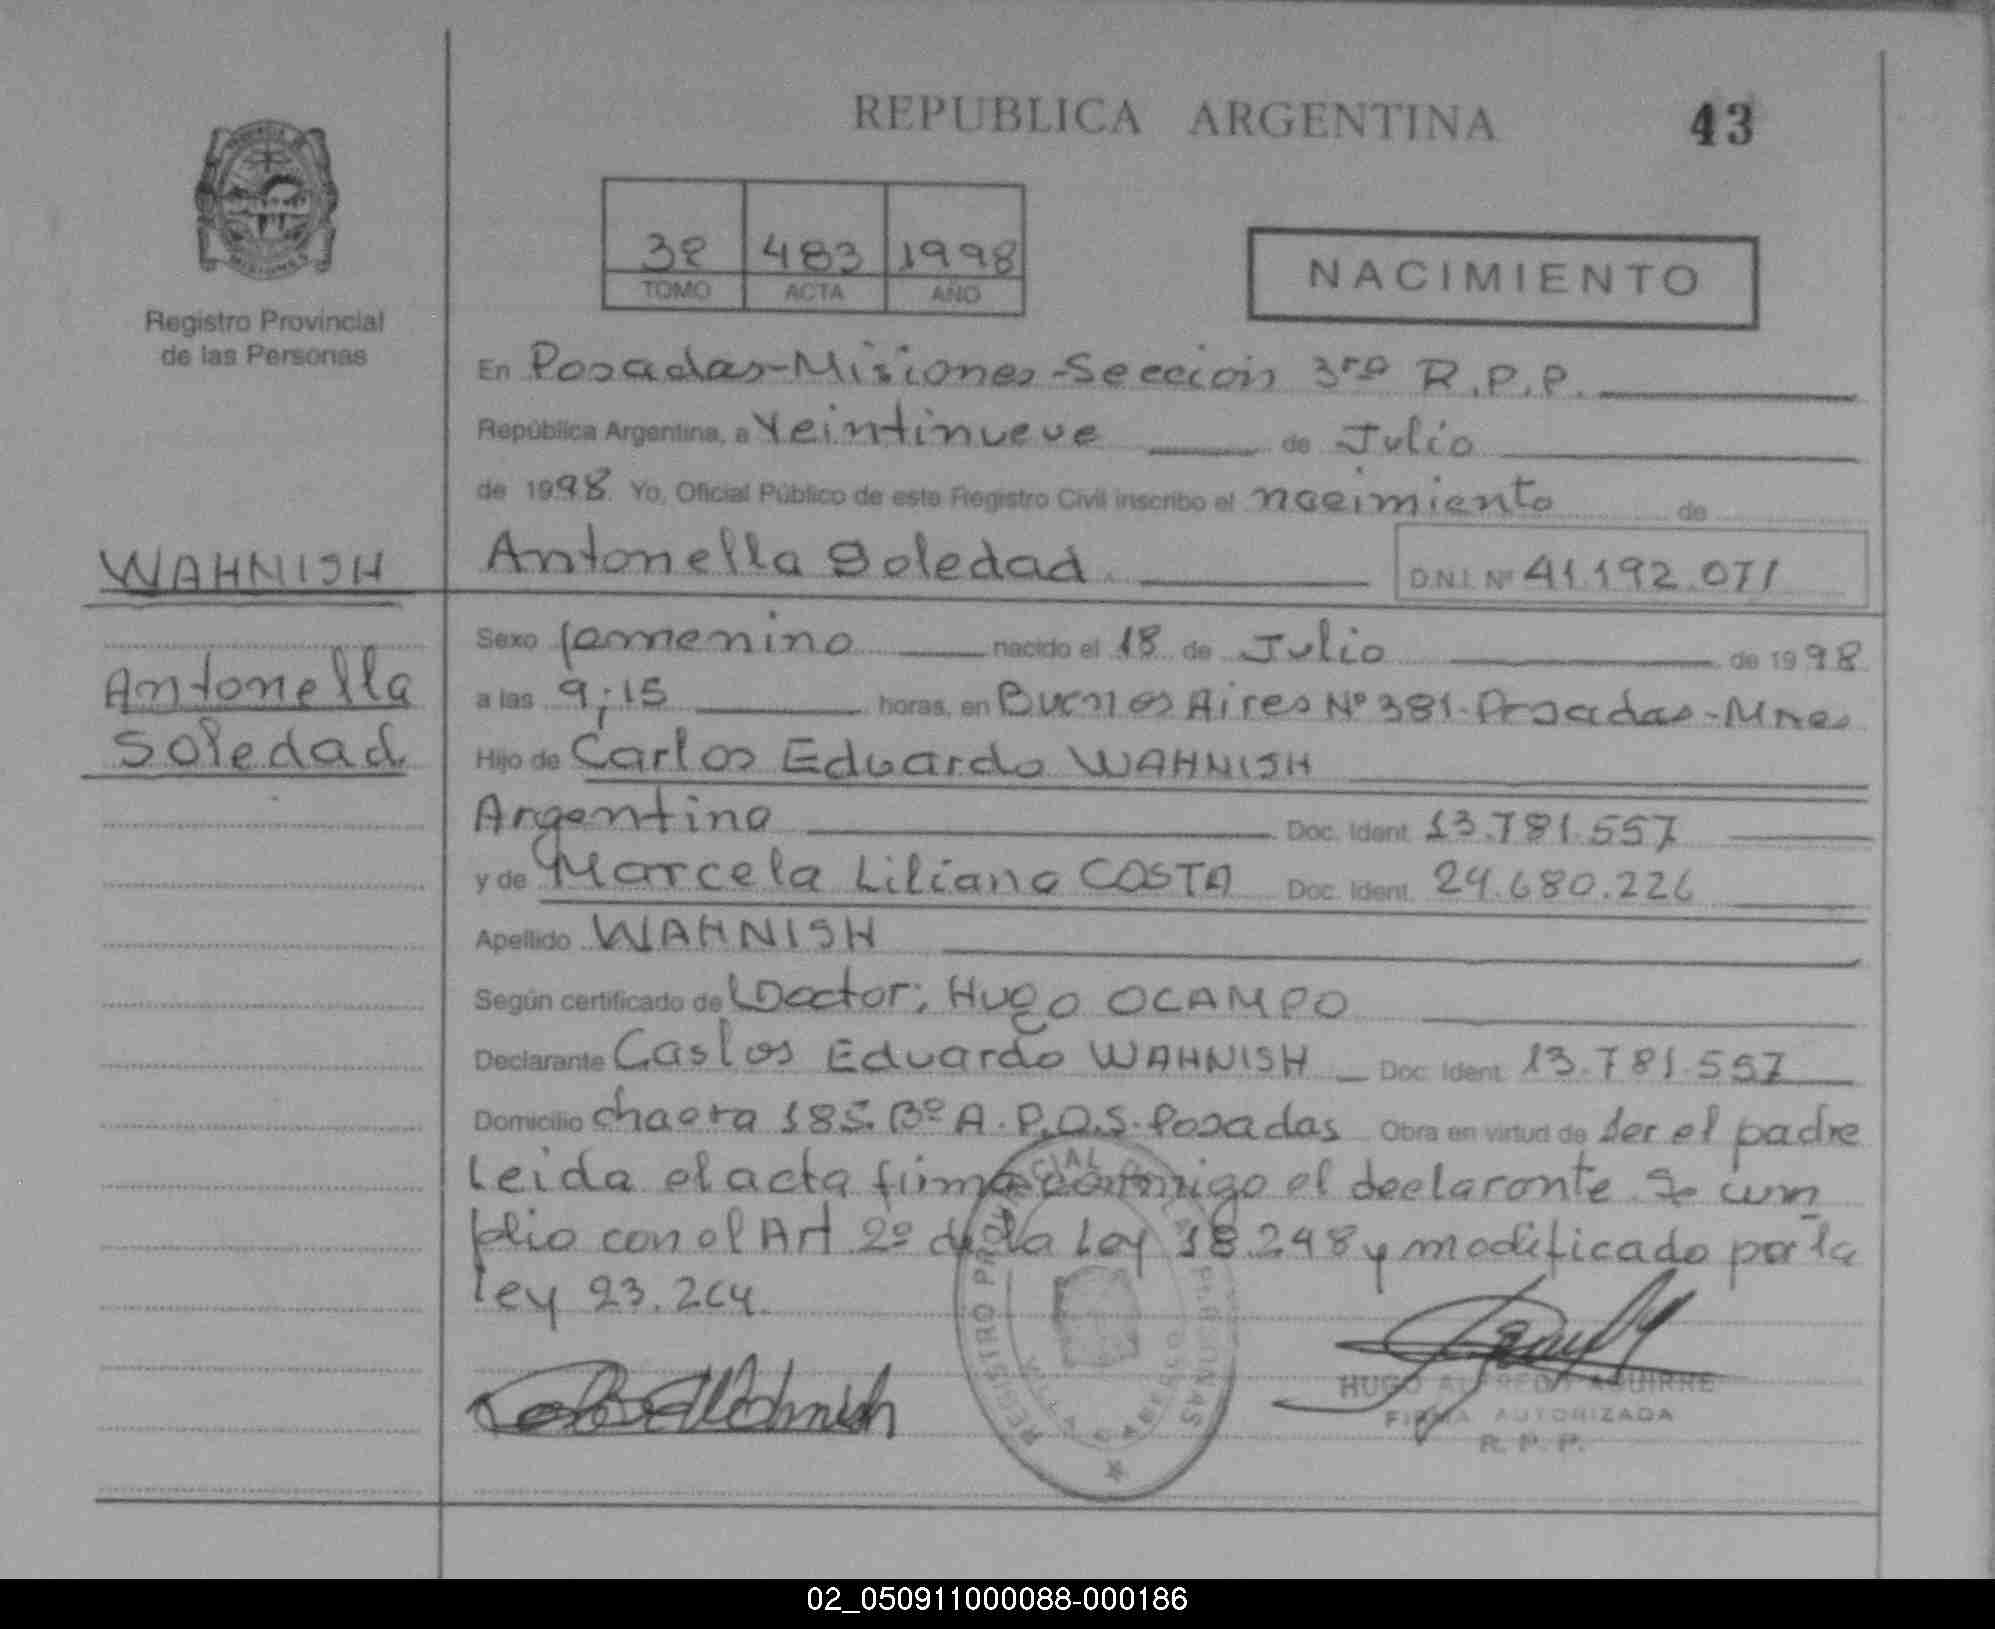 REPUBLICA ARGENTINA 43
32 483 1998
TOMO ACTA AÑO
NACIMIENTO
Registro Provincial
de las Personas
En Posadas-Misiones-Sección 3ra R.P.P.
República Argentina, a Veintinueve de Julio
de 1998. Yo, Oficial Público de este Registro Civil inscribo el nacimiento de
WAHNISH
Antonella Soledad D.N.I. Nº 41.192.071
Sexo femenino nacido el 18 de Julio de 1998
Antonella
a las 9;15 horas, en Buenos Aires Nº 381-Posadas-Mnes
Soledad
Hijo de Carlos Eduardo WAHNISH
Argentino Doc. Ident. 13.781.557
y de Marcela Liliana COSTA Doc. Ident. 24.680.226
Apellido WAHNISH
Según certificado de Doctor; Hugo OCAMPO
Declarante Carlos Eduardo WAHNISH Doc. Ident. 13.781.557
Domicilio chacra 185. Bº A.P.O.S. Posadas Obra en virtud de ser el padre
Leida el acta firma conmigo el declarante Se cum
plio con el Art 2º de la Ley 18.248 y modificado por la
ley 23.264.
REGISTRO PROVINCIAL PERSONAS
HUGO ALFREDO AGUIRRE
FIRMA AUTORIZADA
R. P. P.
02_050911000088-000186